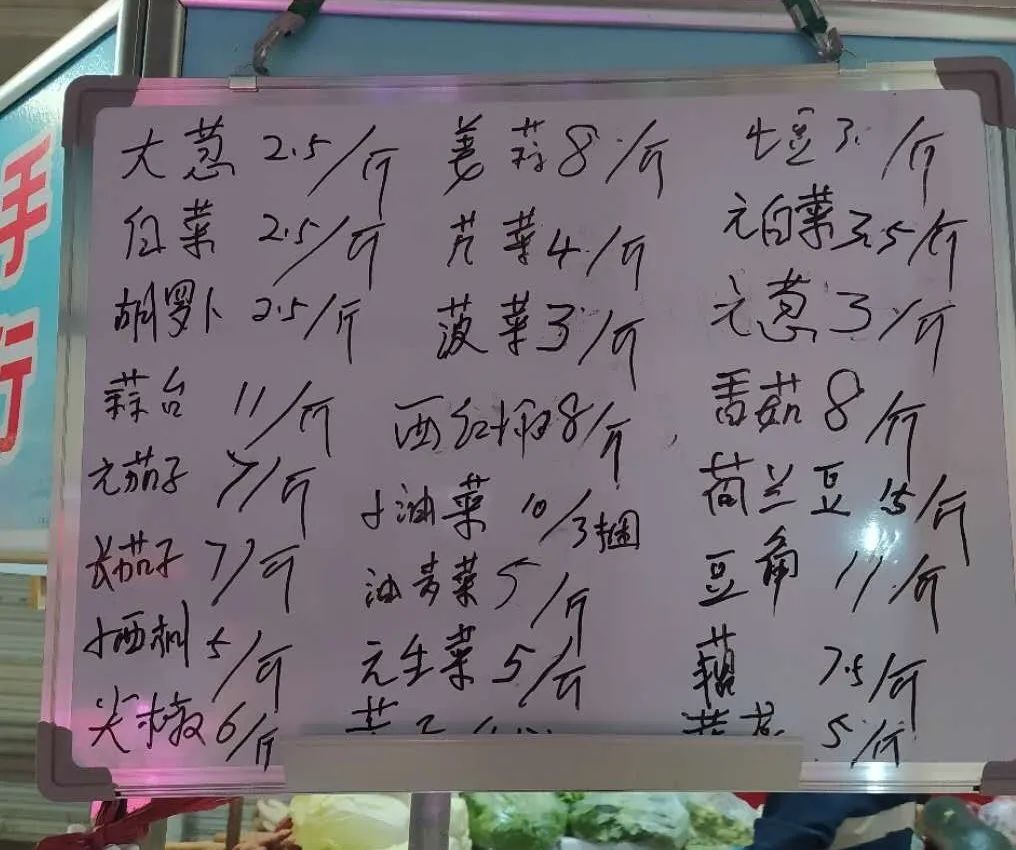 手
行
大葱 2.5/斤 姜蒜 8/斤 土豆 3/斤
白菜 2.5/斤 芹菜 4/斤 元白菜 3.5/斤
胡罗卜 2.5/斤 菠菜 3/斤 元葱 3/斤
蒜台 11/斤 西红柿 8/斤 香菇 8/斤
元茄子 7/斤 小油菜 10/3捆 荷兰豆 15/斤
长茄子 7/斤 油青菜 5/斤 豆角 11/斤
小西利 5/斤 元生菜 5/斤 藕 7.5/斤
尖椒 6/斤 5/斤